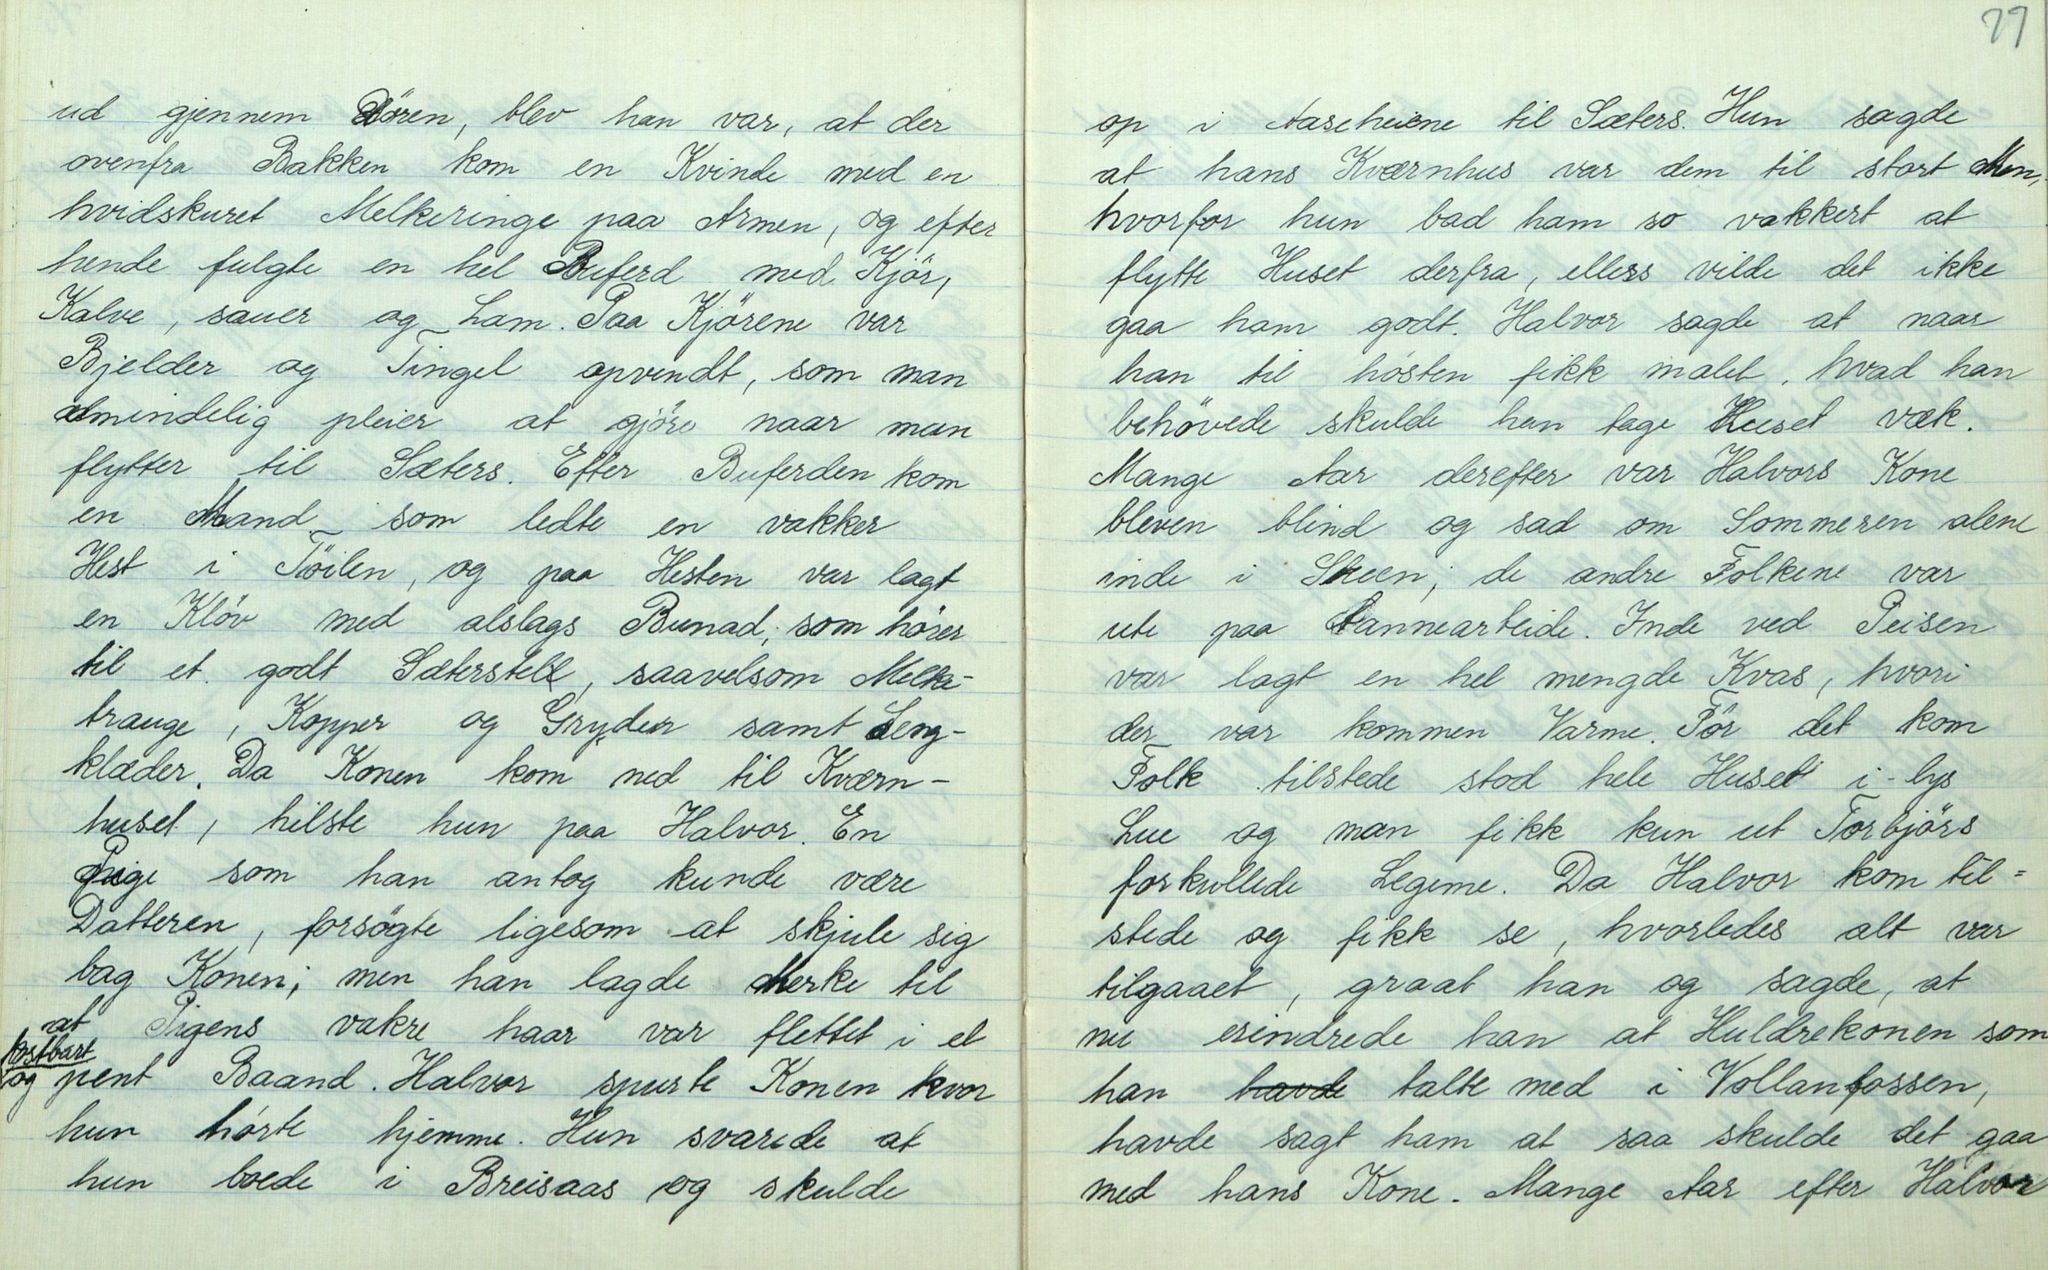 ud gjennem Dören, blev han var, at der
ovenfra Bakken kom en Kvinde med en
hvidskuret Melkeringe paa Armen, og efter
hende fulgte en hel Buferd med Kjör,
Kalve, sauer og Lam. Paa Kjörene var
Bjelder og Tingel opvendt, som man
almindelig pleier at gjöre naar man
flytter til Sæters. Efter Buferden kom
en Mand som ledte en vakker
Hest i Töilen, og paa Hesten var lagt
en Klöv med alslags Bunad, som hörer
til et godt Sæterstell, saavelsom Melke-
trauge, Kopper og Gryder samt Seng-
klæder. Da Konen kom ned til Kværn-
huset, hilste hun paa Halvor. En
Pige som han antog kunde være
Datteren, forsögte ligesom at skjule sig
bag Konen; men han lagde Merke til
at Pigens vakre haar var flettet i et
kostbart
og pent Baand. Halvor spurte Konen hvor
hun hörte hjemme. Hun svarede at
hun boede i Breisaas og skulde
77
op i Aaseheiene til Sæters. Hun sagde
at hans Kværnhus var dem til stort Men,
hvorfor hun bad ham so vakkert at
flytte Huset derfra, ellers vilde det ikke
gaa ham godt. Halvor sagde at naar
han til hösten fikk malet, hvad han
behövede skulde han tage Huset væk.
Mange Aar derefter var Halvors Kone
bleven blind og sad om Sommeren alene
inde i Stuen; de andre Folkene var
ute paa Aannearbeide. Inde ved Peisen
var lagt en hel mengde Kvas, hvori
der var kommen Varme.För det kom
Folk tilstede stod hele Huset i lys
Lue og man fikk kun ut Torbjörs
forkullede Legeme. Da Halvor kom til=
stede og fikk se, hvorledes alt var
tilgaaet, graat han og sagde, at
nu erindrede han at Huldrekonen som
han havde talte med i Vollanfossen,
havde sagt ham at saa skulde det gaa
med hans Kone. Mange Aar efter Halvor